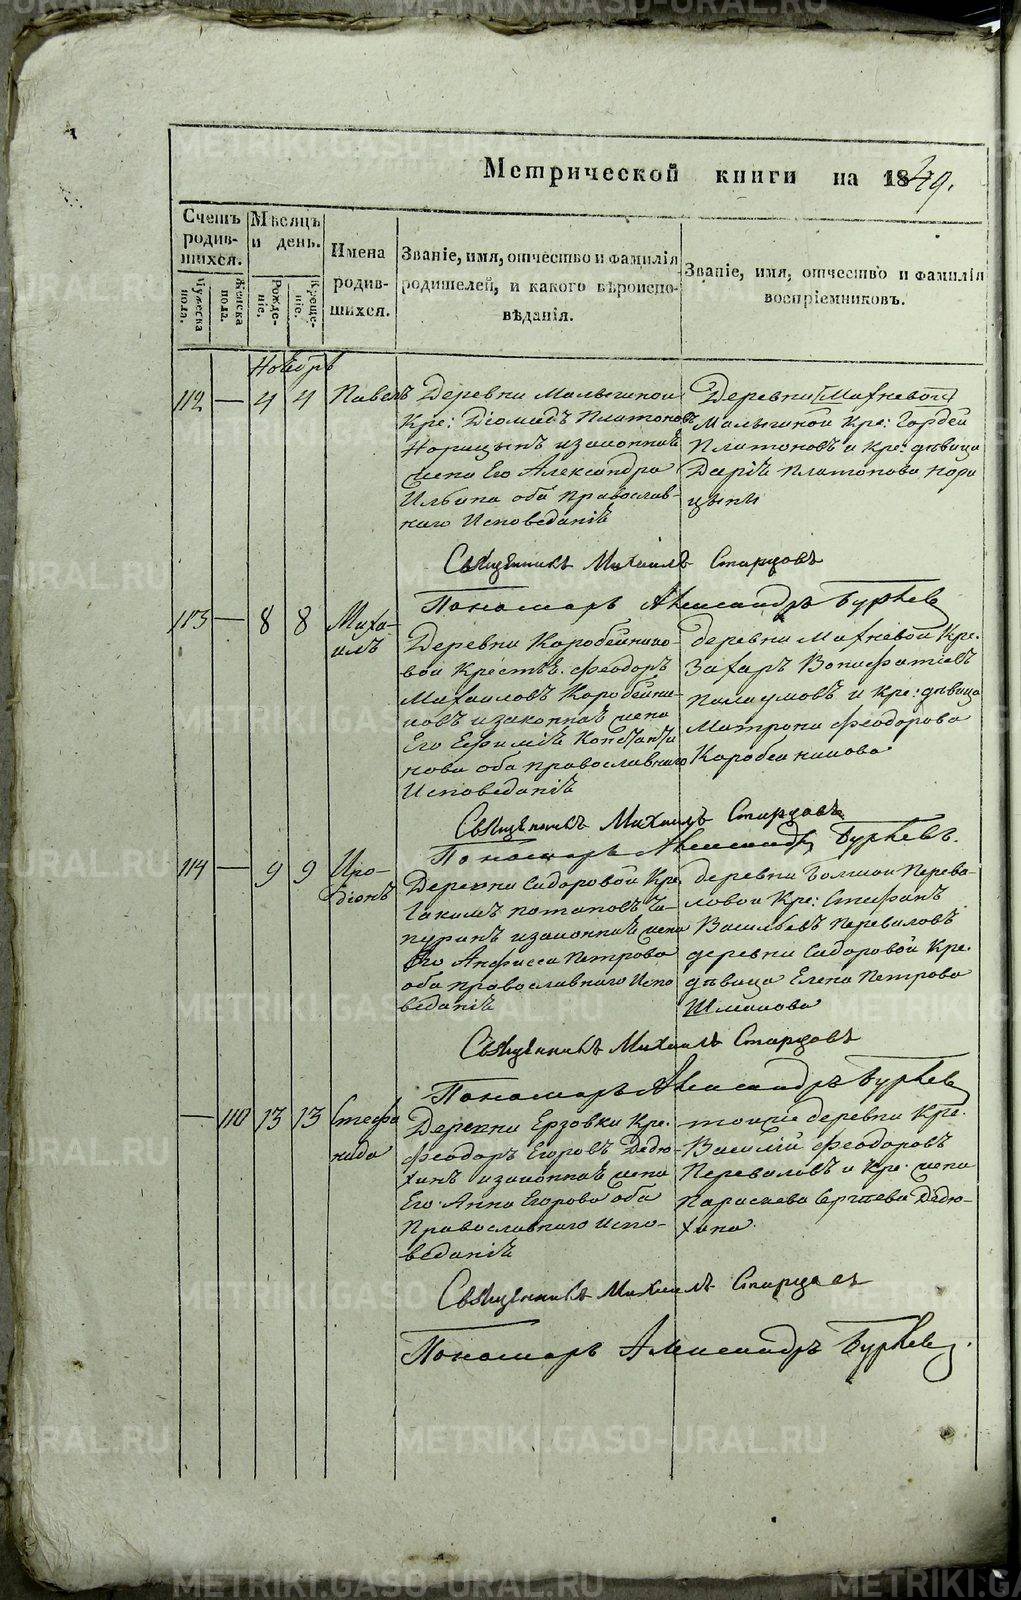 METRIKI.GASO-URAL.RU
Метрической книги на 1849.
Счетъ родив-шихся.
Мужеска пола.
Женска пола.
Мѣсяцъ и день.
Рожде-ніе.
Креще-ніе.
Имена родив-шихся.
Званіе, имя, отчество и фамилія родителей, и какого вѣроиспо-вѣданія.
Званіе, имя, отчество и фамилія воспріемниковъ.
Ноябрь
112 — 4 4 Павелъ
Деревни Малыгиной
Кре: Діомидъ Платоновъ
Норицынъ и законная
жена Его Александра
Ильина оба православ-
наго Исповеданія
Деревни [Махневой]
Малыгиной Кре: Гордей
Платоновъ и Кре: дѣвица
Дарія Платонова Нори
цыны
Священникъ Михаилъ Старцовъ
Пономарь Александръ Бурчев
113 — 8 8 Миха-
илъ
Деревни Коробейнико-
вой Крестья. Феодоръ
Михаиловъ Коробейни-
ковъ и законная жена
Его Ефимія Константи
нова оба православнаго
Исповеданія
деревни Махневой Кре.
Захаръ Вонифатіевъ
и Кре: дѣвица
Матрона Феодорова
Коробейникова
Священникъ Михаилъ Старцовъ
Пономарь Александръ Бурчевъ.
114 — 9 9 Иро-
діонъ
Деревни Сидоровой Кре
Іакимъ Потаповъ Чи-
пуринъ и законная жена
Его Анфиса Петрова
оба православнаго Испо
веданія
деревни Болшой Перева-
ловой Кре: Стефанъ
Васильевъ Переваловъ
деревни Сидоровой Кре.
дѣвица Елена Петрова
Шмакова
Священникъ Михаилъ Старцовъ
Пономарь Александръ Бурчев
— 110 13 13 Стефа
нида
Деревни Ерзовки Кре.
Феодоръ Егоровъ Дедю-
хинъ и законная жена
Его Анна Егорова оба
Православнаго Испо-
веданія
тоя же деревни Кре.
Василій Феодоровъ
Переваловъ и Кре. жена
Параскева Сергѣева Дедю-
хина.
Священникъ Михаилъ Старцовъ
Пономарь Александръ Бурчев.